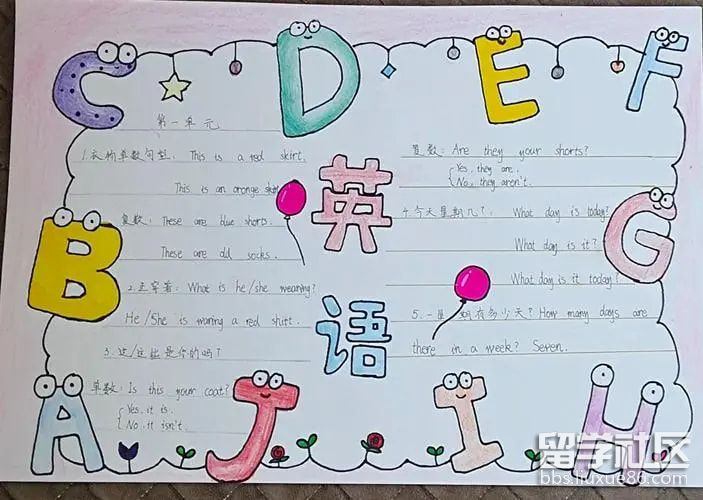 C D E F
第一单元
1.衣物单数句型: This is a red skirt.
This is an orange skirt
复数: These are blue shorts.
These are old socks.
2.正穿着: What is he/she wearing?
He/She is waring a red shitt.
3.这/这些是你的吗?
单数: Is this your coat?
Yes, it is.
No, it isn't.
英
语
复数: Are they your shorts?
Yes, they are.
No, they aren't.
4.今天星期几?: What day is today?
What day is it?
What day is it today?
5.一星期有多少天? How many days are
there in a week? Seven.
B G
A J I H
留学社区
bbs.liuxue86.com